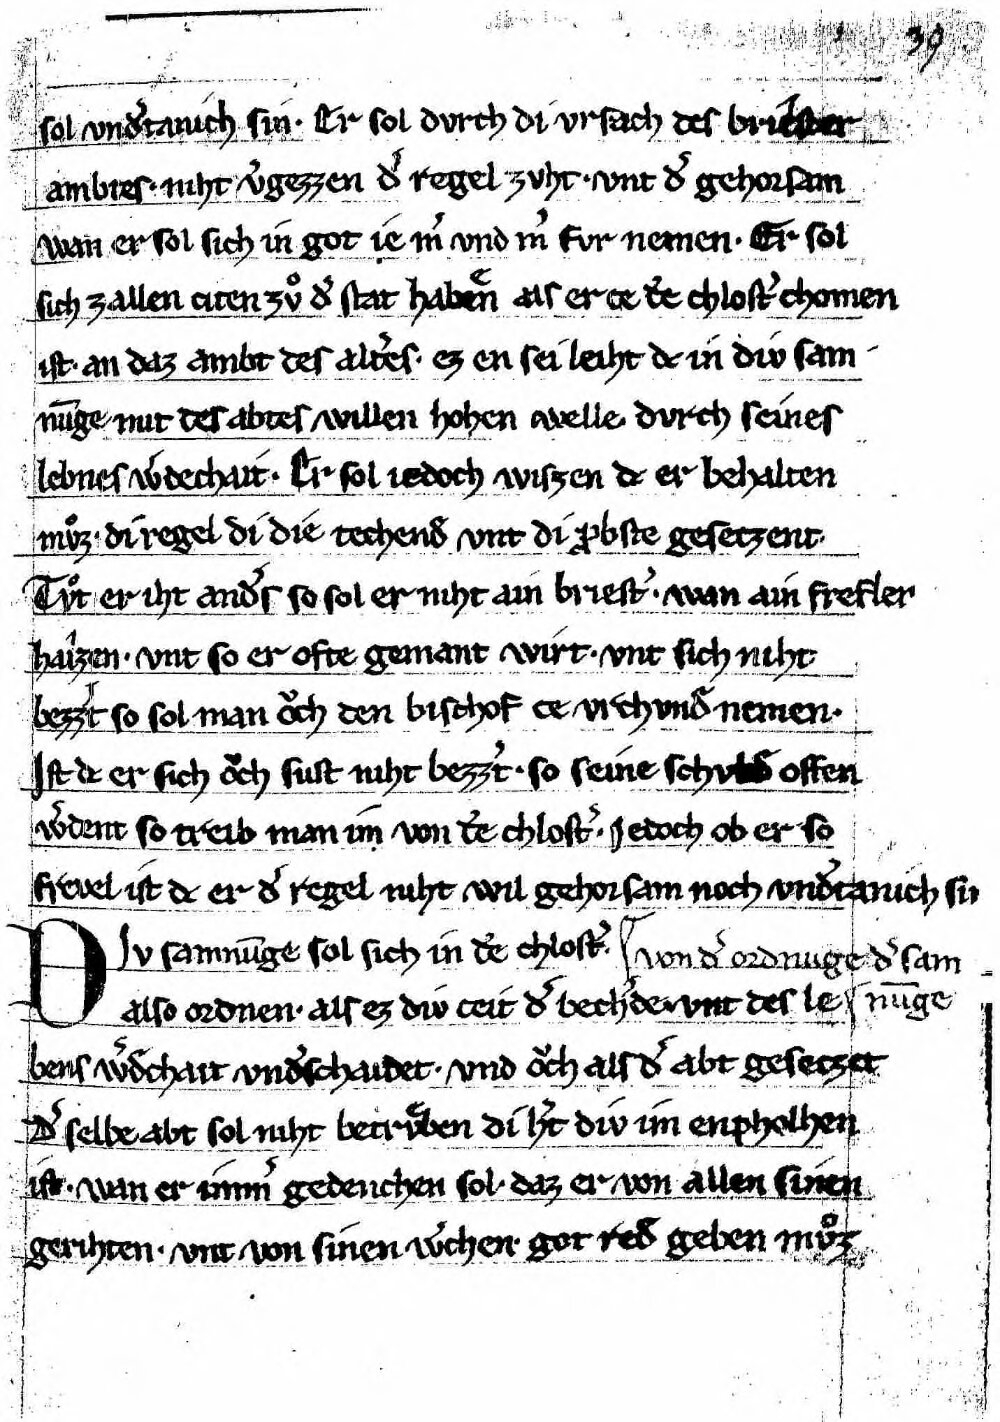 39
sol vnd᷒tanich sin · Er sol dvrch di vrsach des briester
ambtes · niht v᷒gezzen d᷒ regel zvht · vnt d᷒ gehorsam
wan er sol sich in got ie m᷒ vnd m᷒ fvr nemen · Er sol
sich zallen citen zvͦ d᷒ stat habeͤn als er ce d᷒e chlost᷒ chomen
ist · an daz ambt des alt᷒es · ez en sei leiht dc in div sam
nv̄ge mit des abtes willen hohen welle dvrch seines
lebnes w᷒dechait · Er sol iedoch wiszen dc er behalten
mvͦz · di regel di die techend᷒ vnt di p̲bste gesetzent ·
Tvͦt er iht and᷒s so sol er niht ain briest᷒ · wan ain frefler
haizen · vnt so er ofte gemant wirt · vnt sich niht
bezz᷒t so sol man oͮch den bischof ce vrchvnd᷒ nemen ·
Ist dc er sich oͮch sust niht bezz᷒t · so seine schvld᷒ offen
w᷒dent so treib man im von d᷒e chlost᷒ · Jedoch ob er so
frevel ist dc er d᷒ regel niht wil gehorsam noch vnd᷒tanich sin
Div samnv̄ge sol sich in d᷒e chlost᷒ · von d᷒ ordnuge d᷒ sam
also ordnen · als ez div ceit d᷒ bech᷒de · vnt des le nv̄ge
bens w᷒dchait vnd᷒schaidet · vnd oͮch als d᷒ abt gesetzet
D᷒ selbe abt sol niht betrvͤben di h᷒t div im enpholhen
ist · wan er imm᷒ gedenchen sol · daz er von allen sinen
gerihten · vnt von sinen w᷒chen · got red᷒ geben mvͦz